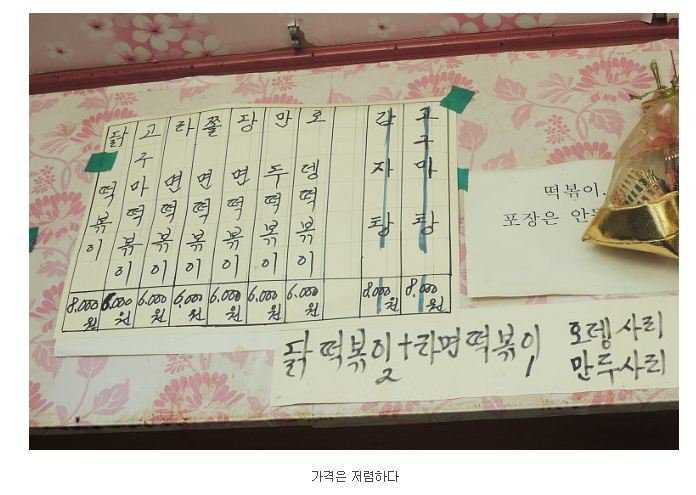 닭떡볶이 8.000원
고구마떡볶이 6.000원
라면떡볶이 6.000원
쫄면떡볶이 6.000원
장면떡볶이 6.000원
만두떡볶이 6.000원
오뎅떡볶이 6.000원
감자탕 8.000원
고구마탕 8.000원
떡볶이.
포장은
닭떡볶이+라면떡볶이
2 1
오뎅사리
만두사리
가격은 저렴하다